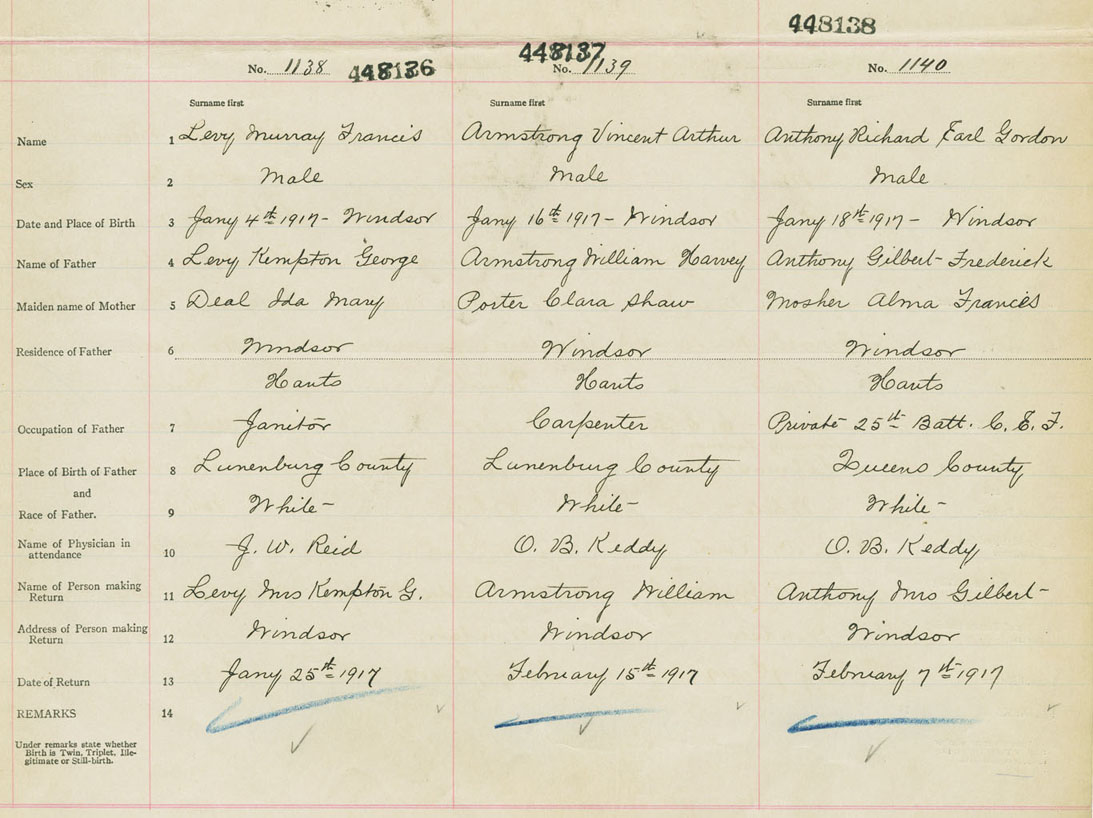 448138
448137
No. 1138 448136 No. 1139 No. 1140
Surname first Surname first Surname first
Name 1 Levy Murray Francis Armstrong Vincent Arthur Anthony Richard Earl Gordon
Sex 2 Male Male Male
Date and Place of Birth 3 Jany 4th 1917 - Windsor Jany 16th 1917 - Windsor Jany 18th 1917 - Windsor
Name of Father 4 Levy Kempton George Armstrong William Harvey Anthony Gilbert Frederick
Maiden name of Mother 5 Deal Ida Mary Porter Clara Shaw Mosher Alma Frances
Residence of Father 6 Windsor Windsor Windsor
Hants Hants Hants
Occupation of Father 7 Janitor Carpenter Private 25th Batt. C. E. F.
Place of Birth of Father 8 Lunenburg County Lunenburg County Queens County
and
Race of Father. 9 White White White
Name of Physician in attendance 10 J. W. Reid O. B. Keddy O. B. Keddy
Name of Person making Return 11 Levy Mrs Kempton G. Armstrong William Anthony Mrs Gilbert
Address of Person making Return 12 Windsor Windsor Windsor
Date of Return 13 Jany 25th 1917 February 15th 1917 February 7th 1917
REMARKS 14
Under remarks state whether
Birth is Twin, Triplet, Ille-
gitimate or Still-birth.